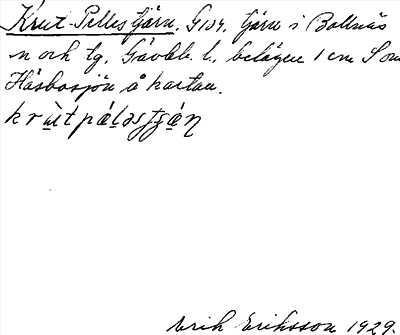 Krut-Pelles tjärn. G 124. tjärn i Bollnäs
sn och tg. Gävleb. l., belägen 1 cm S om
Häsbosjön å kartan.
krùtpáləstʃán
Erik Eriksson 1929.